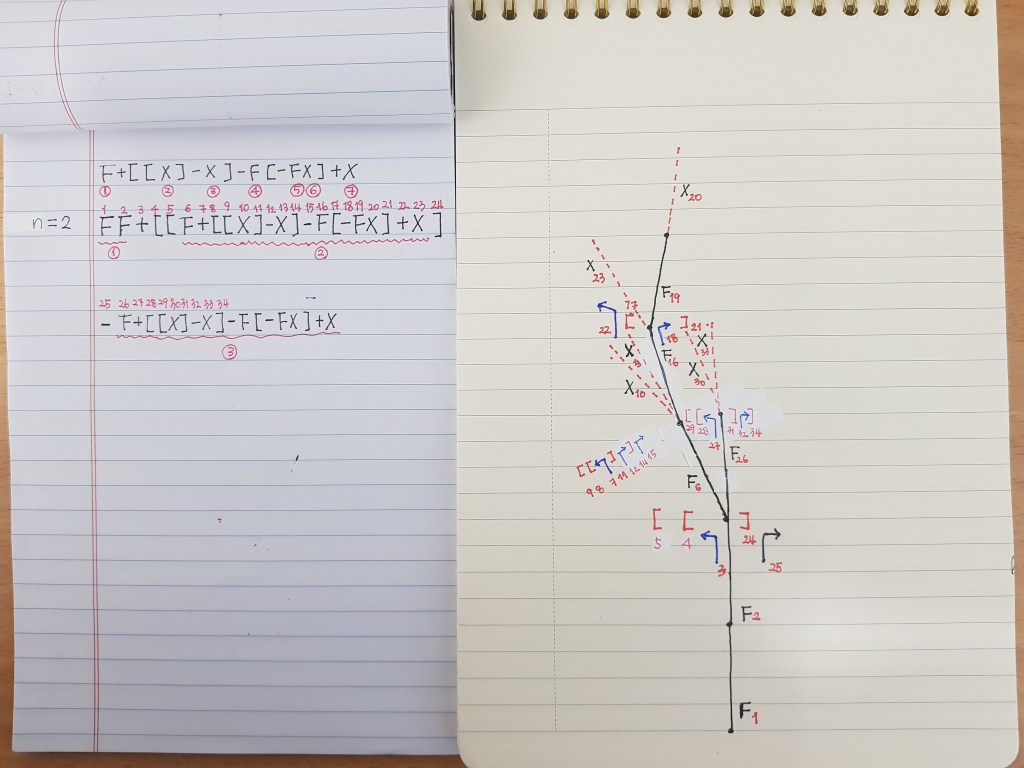 F+[[X]-X]-F[-FX]+X
① ② ③ ④ ⑤ ⑥ ⑦
1 2 3 4 5 6 7 8 9 10 11 12 13 14 15 16 17 18 19 20 21 22 23 24
n=2 FF+[[F+[[X]-X]-F[-FX]+X]
① ②
25 26 27 28 29 30 31 32 33 34
- F+[[X]-X]-F[-FX]+X
③
X20
X
23
F19
17
22 [ 18 ] 21
F16
X
33
X
X10
X
30
[ [ ] ]
29 28 27 31 32 34
F26
[ [ ] ]
9 8 7 11 12 14 15
F6
[ [ ]
5 4 24
3 25
F2
F1